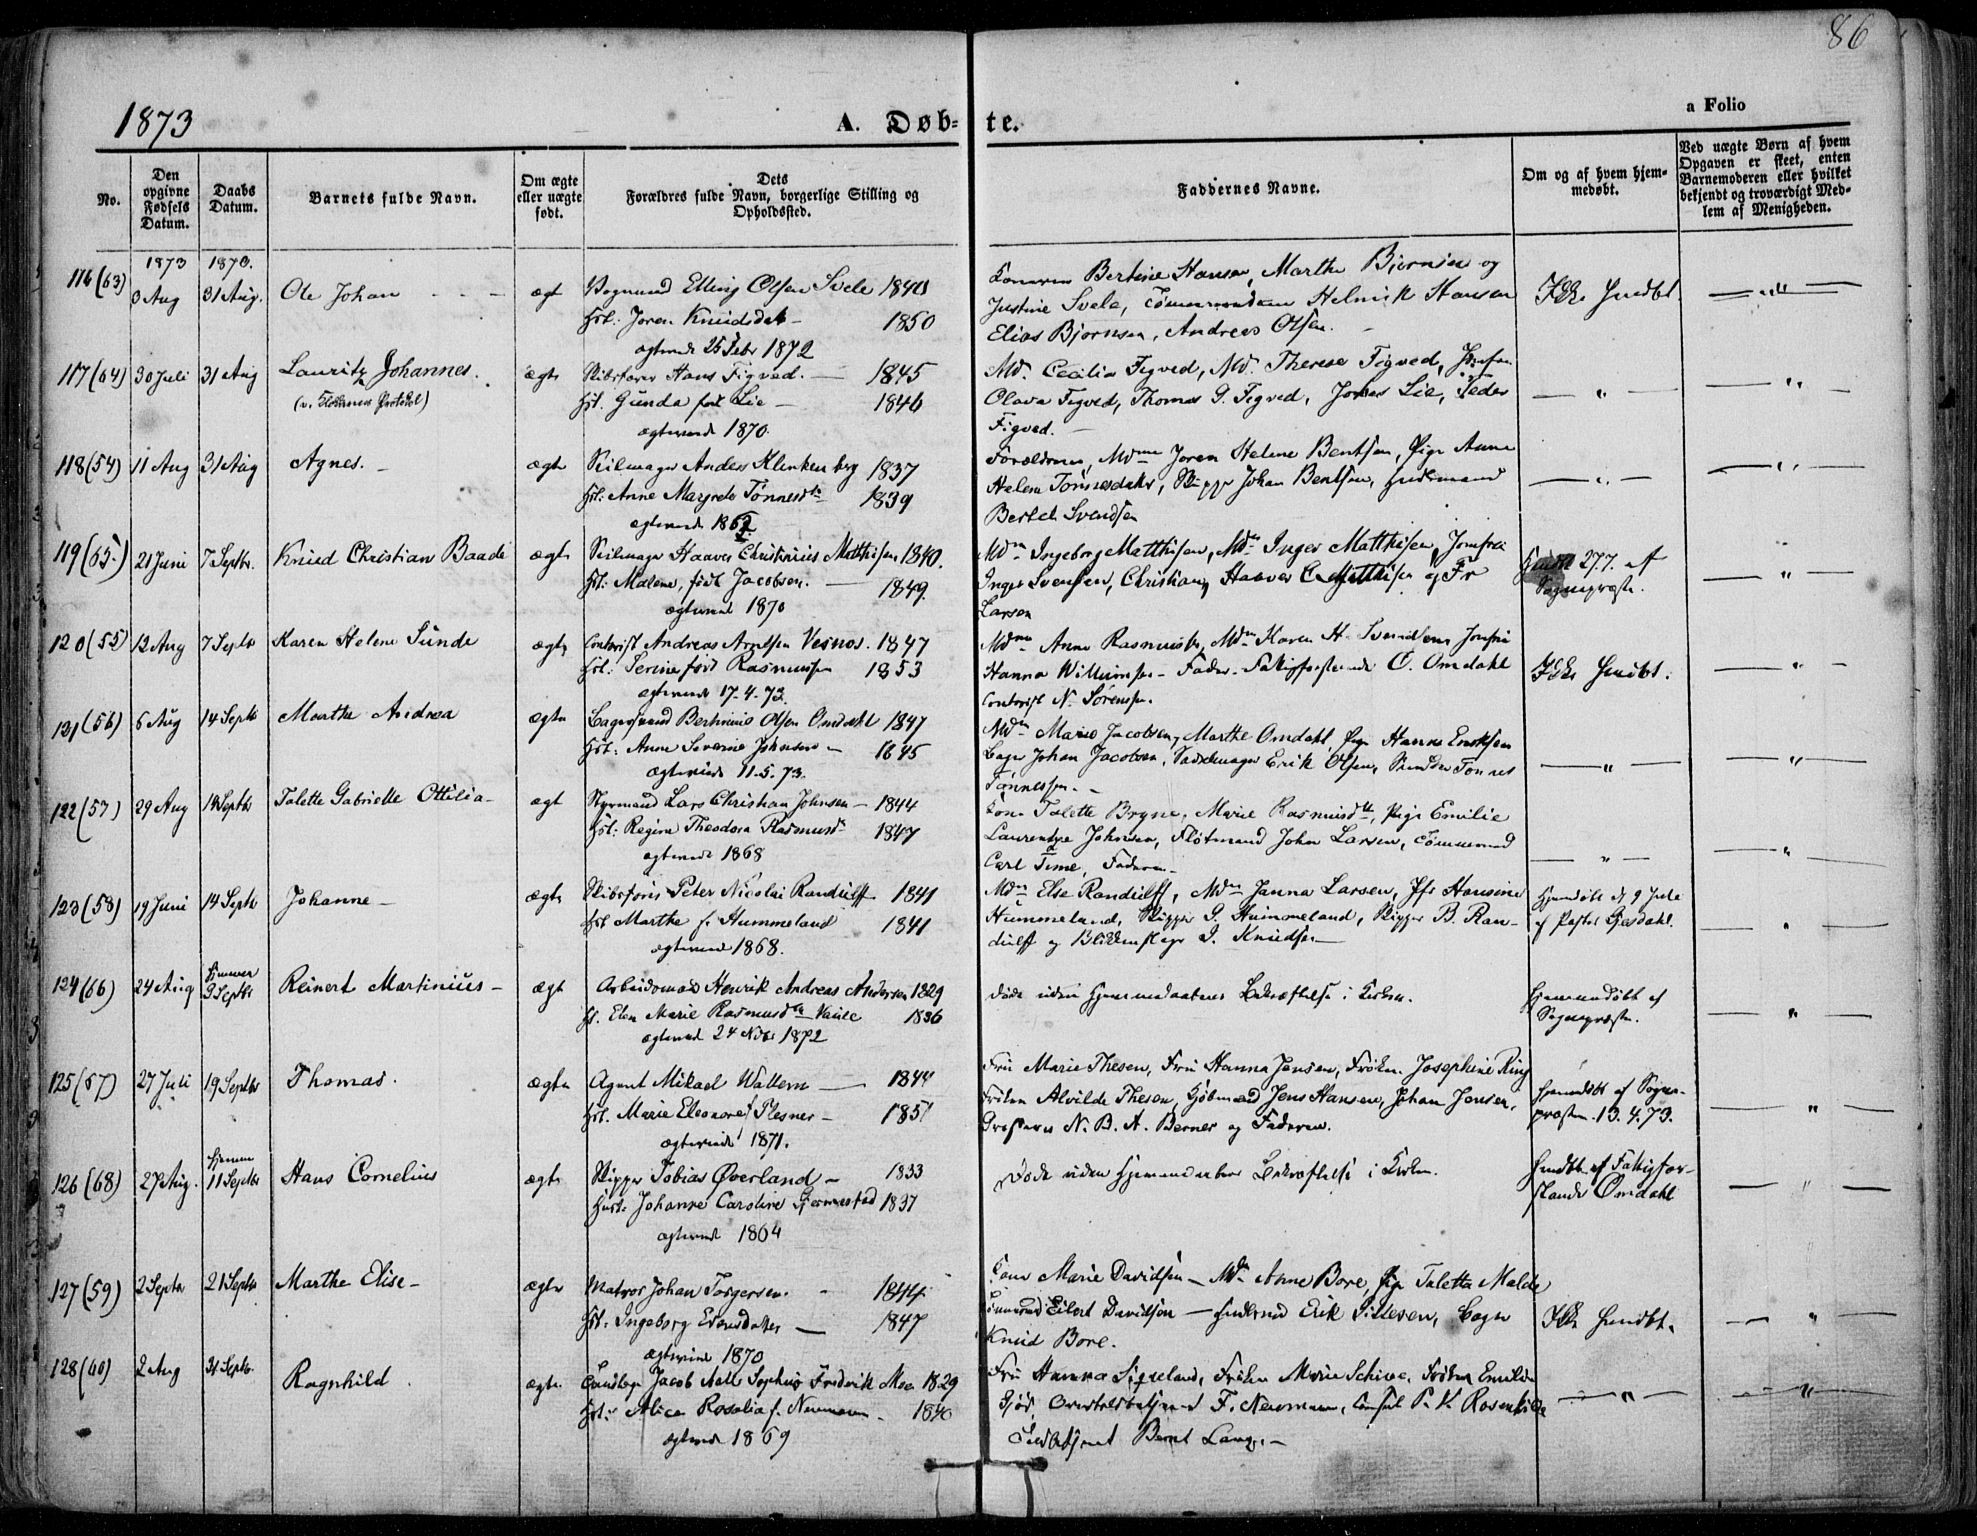 86
1873
A. Døb-te.
a Folio
No.
Den opgivne Fødsels Datum.
Daabs Datum.
Barnets fulde Navn.
Om ægte eller uægte født.
Dets Forældres fulde Navn, borgerlige Stilling og Opholdssted.
Faddernes Navne.
Om og af hvem hjemmedøbt.
Ved uægte Børn af hvem Opgaven er skeet, enten Barnemoderen eller hvilket bekjendt og troværdigt Medlem af Menigheden.
1873 1873.
116 (63) 3 Aug 31 Aug. Ole Johan ægt Elling Olsen Svele 1840
Hst. Joren Knudsdat 1850
ægteviede 25 Febr 1872
Bertine Hansen, Marthe Bjørnsen og
Justine Svele, Helmik Hansen
Elias Bjørnsen, Andreas Olsen.
117 (64) 30 Juli 31 Aug Lauritz Johannes. ægte Skibsfører Hans Figved. 1845
Hst. Gunda født Lie 1846
ægteviede 1870.
Md. Cecilia Figved, Md. Therese Figved, Jomfru
Olava Figved, Thomas G. Figved, Johs Lie, Peder
Figved.
118 (54) 11 Aug 31 Aug Agnes. ægte Seilmager Anders Klinkenberg 1837
Hst. Anne Margrete Tønnesdtr 1839
ægteviede 1862
Forældrene, Mdme Joren Helene Bentsen, Pige Anne
Helene Tønnesdatter, Skipper Johan Bentsen,
Bertel Svendsen
119 (65) 21 Juni 7 Septbr. Knud Christian Baade ægte Seilmager Haaver Christinius Mathisen 1840.
Hst. Malene, født Jacobsen. 1849.
ægteviede 1870
Mdm Ingeborg Matthisen, Mdm Inger Matthisen, Jomfru
Inger Svensen, Christian, Haaver C. Matthisen og Fr
Larsen
27.7. af
Sognepræsten.
120 (55) 12 Aug 7 Septbr Karen Helene Sunde ægte Contorist Andreas Arntsen Vesnes. 1847
Hst. Serine født Rasmussen 1853
ægteviede 17.4.73.
Mdme Anne Rasmussen, Mdm Karen H. Svendsen, Jomfru
Hanna Willumsen - Fader - Fattigforstander O. Omdahl
Contorist N. Sørensen.
Ikke hmdbt.
121 (56) 6 Aug 14 Septbr Marthe Andrea ægte Bertinius Olsen Omdahl 1847
Hst. Anne Severine Johnsen 1845
ægteviede 11.5.73.
Mdm Marie Jacobsen, Marthe Omdahl, Pige Hanne Eriksen
Bager Johan Jacobsen, Sadelmager Erik Olsen, Tønnes
Tønnessen.
122 (57) 29 Aug 14 Septbr Talette Gabrielle Ottilia ægt Styrmand Lars Christian Johnsen 1844
Hst. Regine Theodora Rasmusdtr 1847
ægteviede 1868
Kone Talette Bryne, Marie Rasmusdtr, Pige Emilie
Laurentze Johnsen, Fløtmand John Larsen, Tømmermand
Carl Time, Faderen
123 (58) 19 Juni 14 Septbr Johanne ægte Skibsfører Peter Nicolai Randulff 1841
Hst Marthe f. Hummeland 1841
ægteviede 1868.
Mdm Else Randulff, Mdm Janna Larsen, Jfr Hansine
Hummeland, Skipper G. Hummeland, Skipper B. Randulff og Blikkenslager J. Knudsen
Hjemdøbt d. 9 Jule
af Pastor Gjesdahl.
124 (66) 24 Aug hjemme 3 Septbr Reinert Martinius ægt Arbeidsmand Henrik Andreas Andersen 1829
H. Elen Marie Rasmusdtr Vaule 1836
ægteviede 24 Nvbr 1872
Døde uden Hjemmedaabens Bekræftelse i Kirken.
Hjemmedøbt af
Sognepræsten.
125 (67) 27 Juli 19 Septbr Thomas. ægte Agent Mikael Wallem 1844
Hst. Marie Eleonore f. Plesner 1851
ægteviede 1871.
Fru Marie Thesen, Fru Hanna Jensen, Frøken Josephine Ring
Frøken Alvilde Thesen, Kjøbmand Jens Hansen, Johan Jensen,
N. B. A. Berner og Faderen.
hjemmedøbt af Sognepræsten. 13.4.73.
126 (68) 27 Aug. hjemme 11 Septbr Hans Cornelius ægte Skipper Tobias Øverland 1833
Hust. Johanne Caroline Gjermestad 1837
ægteviede 1864
Døde uden Hjemmedaabens Bekræftelse i Kirken.
hmdbt af Fattigforstander Omdahl
127 (59) 2 Septbr 21 Septbr Marthe Elise ægte Matros Johan Torgersen. 1844
Hst. Ingeborg 1847
ægteviede 1870
Kone Marie Davidsen - Mdm Anne Bore, Pige Taletta Malde
Eilert Davidsen - Erik Sillesen,
Knud Bore.
Ikke hmdbt.
128 (60) 2 Aug 21 Septbr. Ragnhild. ægte Jacob Aall Sophus Fredrik Moe 1829
Hst. Alice Rosalia f. Neumann 1840
ægteviede 1869
Fru Hanna Sigveland, Frøken Marie Schive, Frøken Emilie
F. Neumann, Consul P. V. Rosenkilde
Bernt Lange.